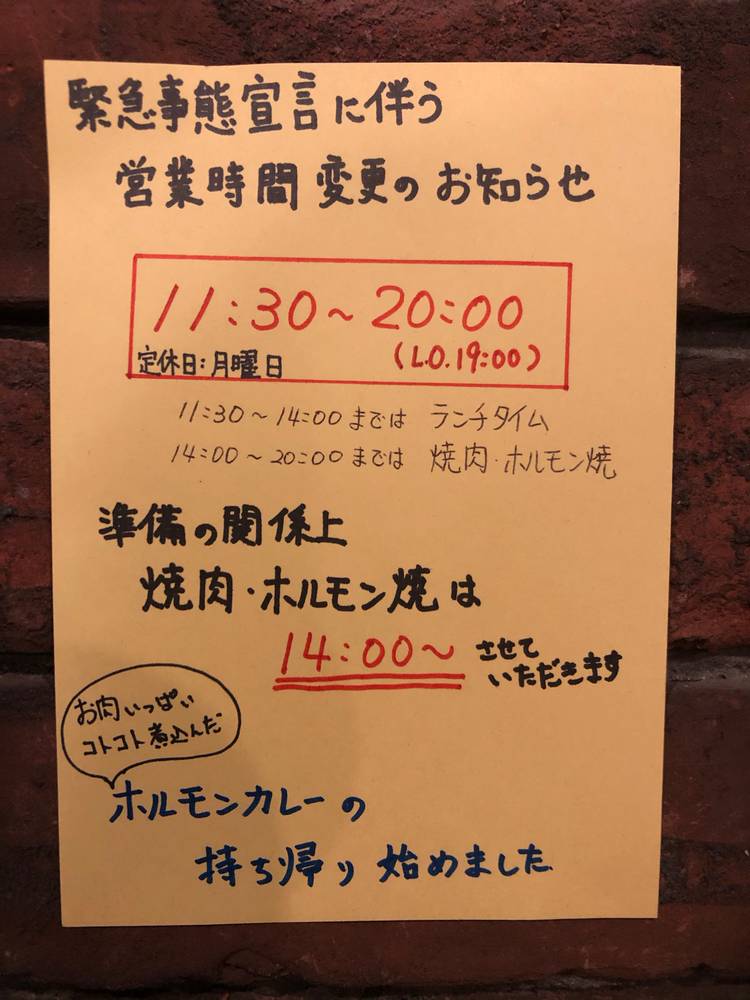 緊急事態宣言に伴う
営業時間変更のお知らせ
11:30~20:00
定休日:月曜日 (L.O.19:00)
11:30~14:00までは ランチタイム
14:00~20:00までは 焼肉・ホルモン焼
準備の関係上
焼肉・ホルモン焼は
14:00~ させて
いただきます
お肉いっぱい
コトコト煮込んだ
ホルモンカレーの
持ち帰り 始めました